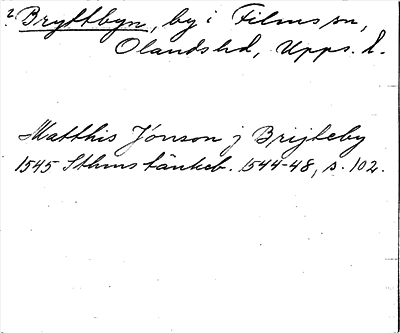 ? Bryttbyn, by i Films sn,
Olands hd, Upps. l.
Matthis Jönson j Brijteby
1545 Sthms tänkeb. 1544-48, s. 102.